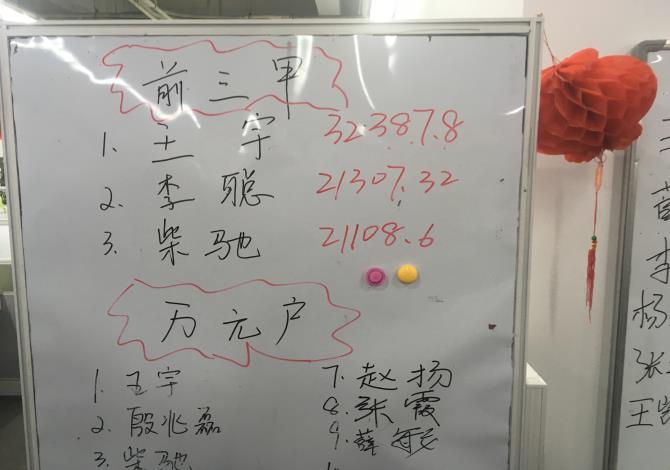 前三甲
1. 王宇 32387.8
2. 李聪 21307.32
3. 柴驰 21108.6
万元户
1. 王宇
2. 殷兆磊
3. 柴驰
7. 赵扬
8. 张霞
9. 薛
李
杨
张
王